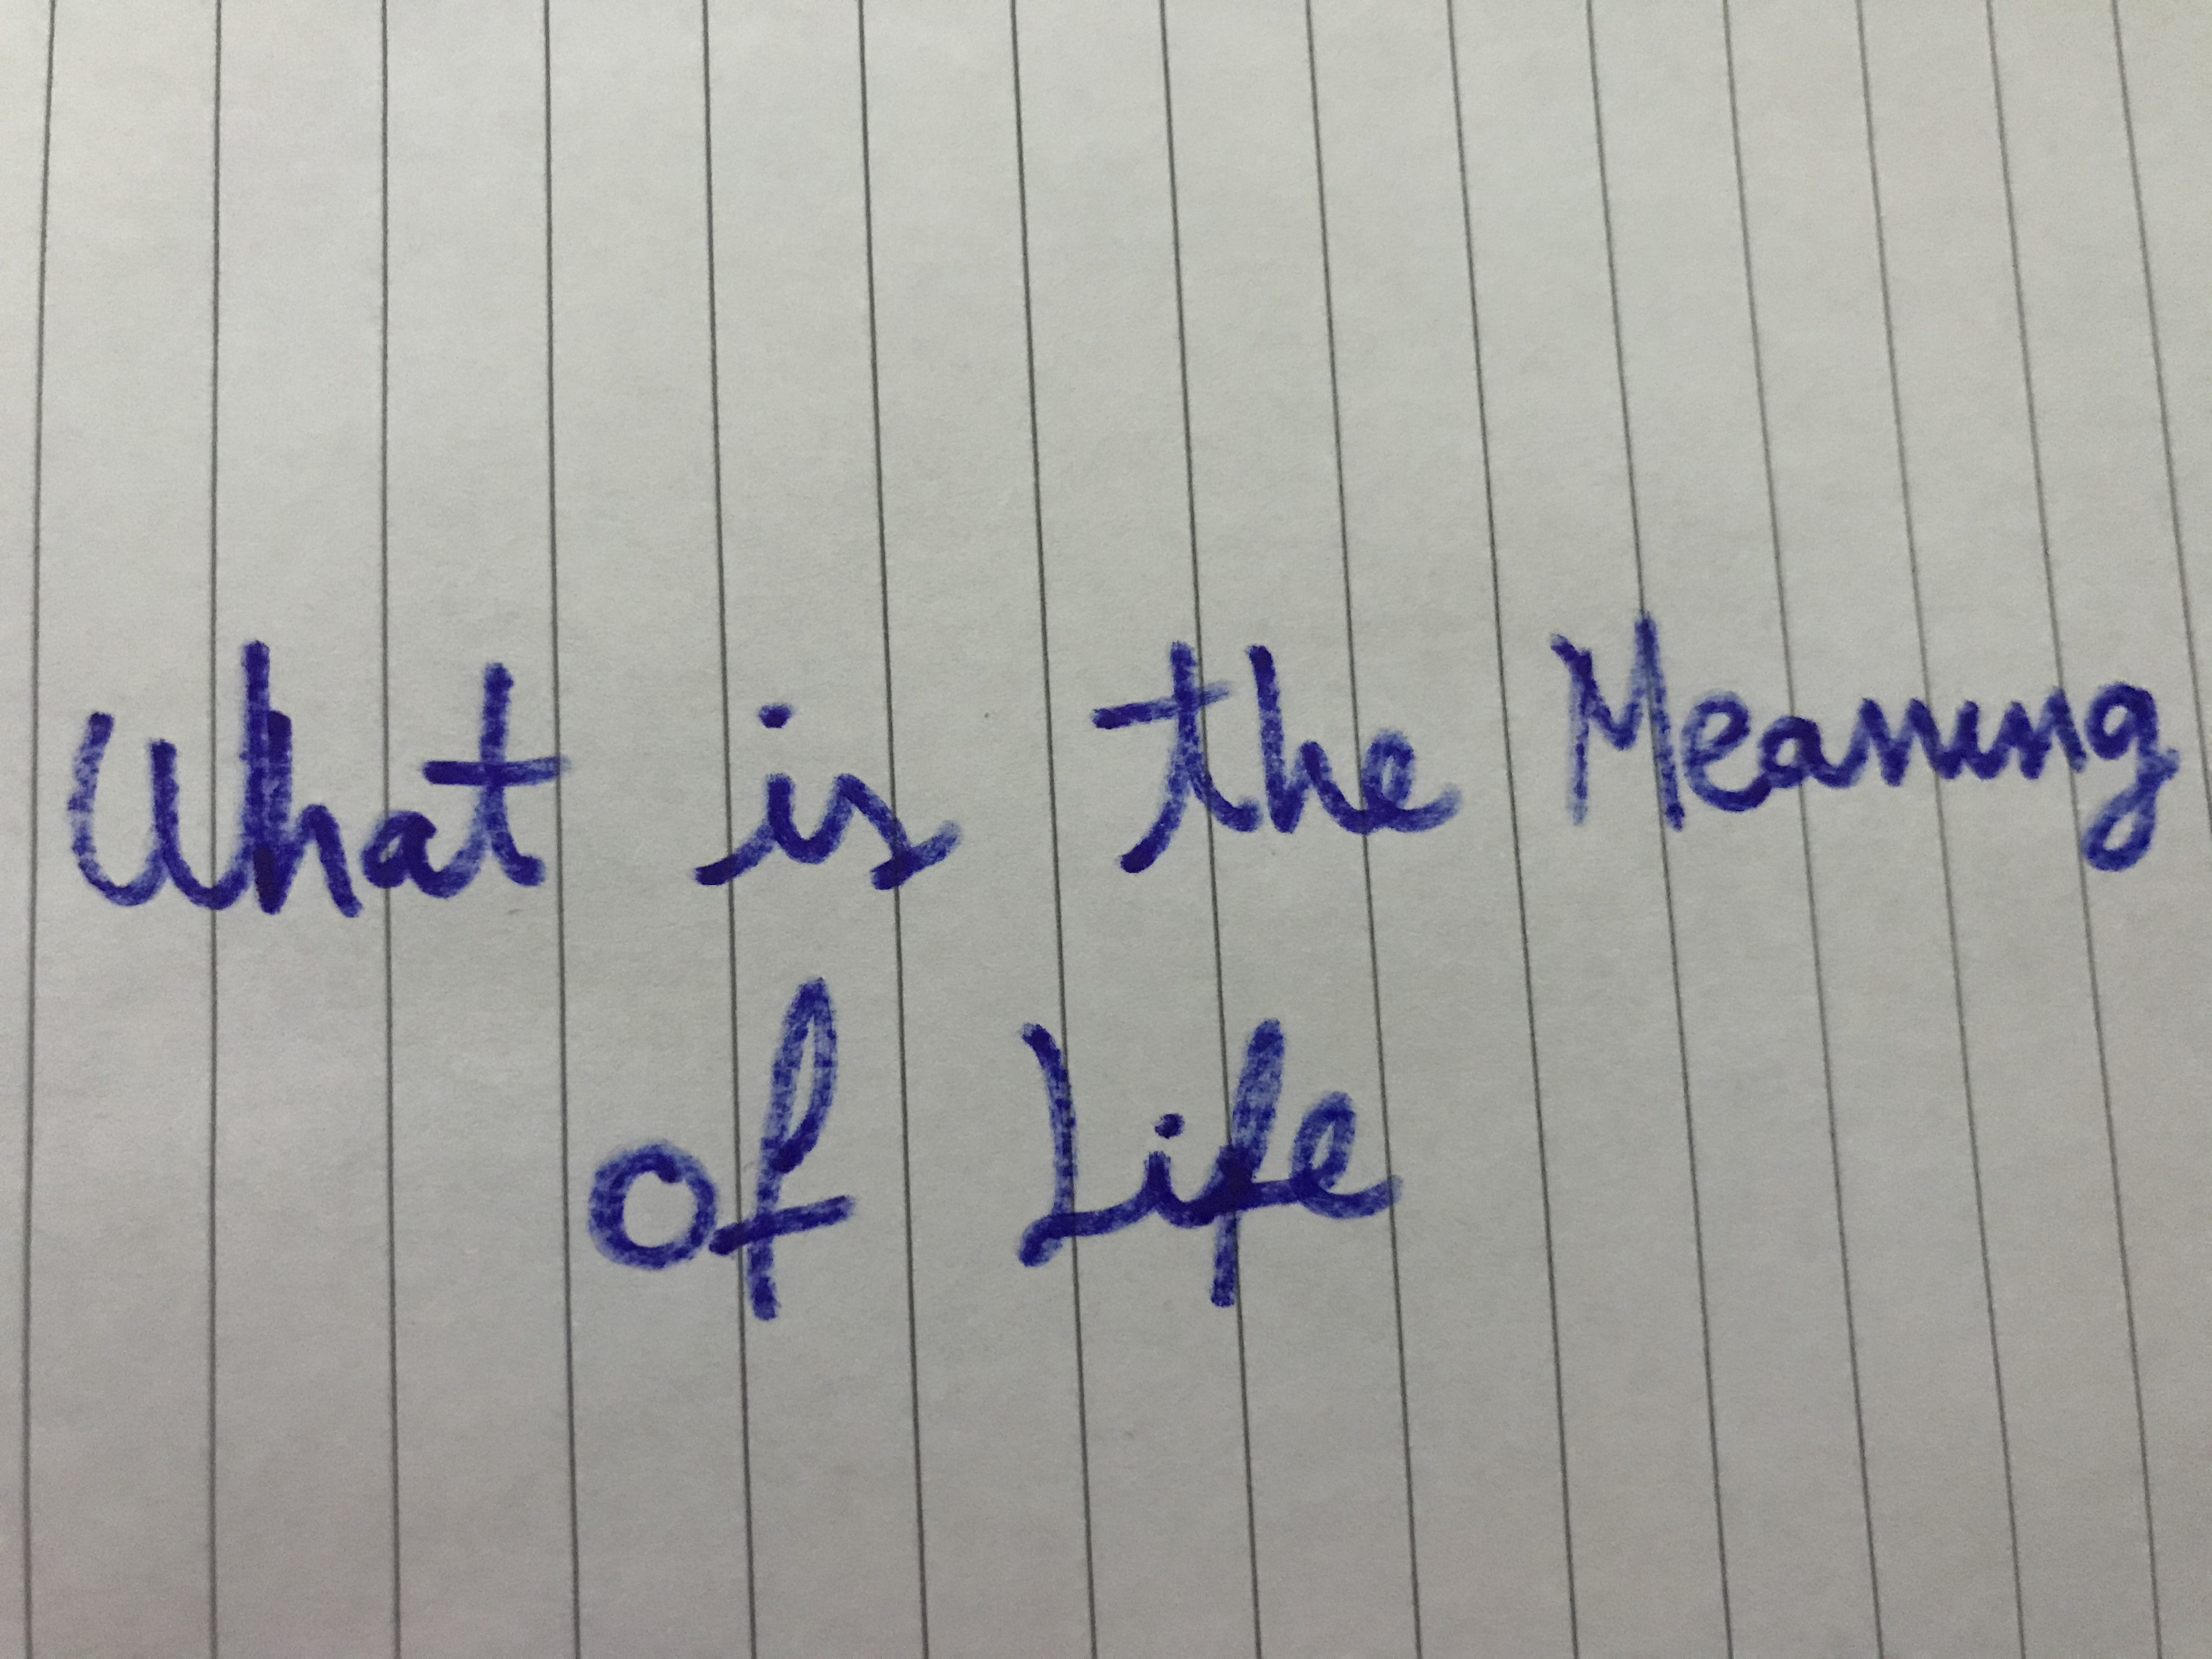 What is the Meaning
of Life